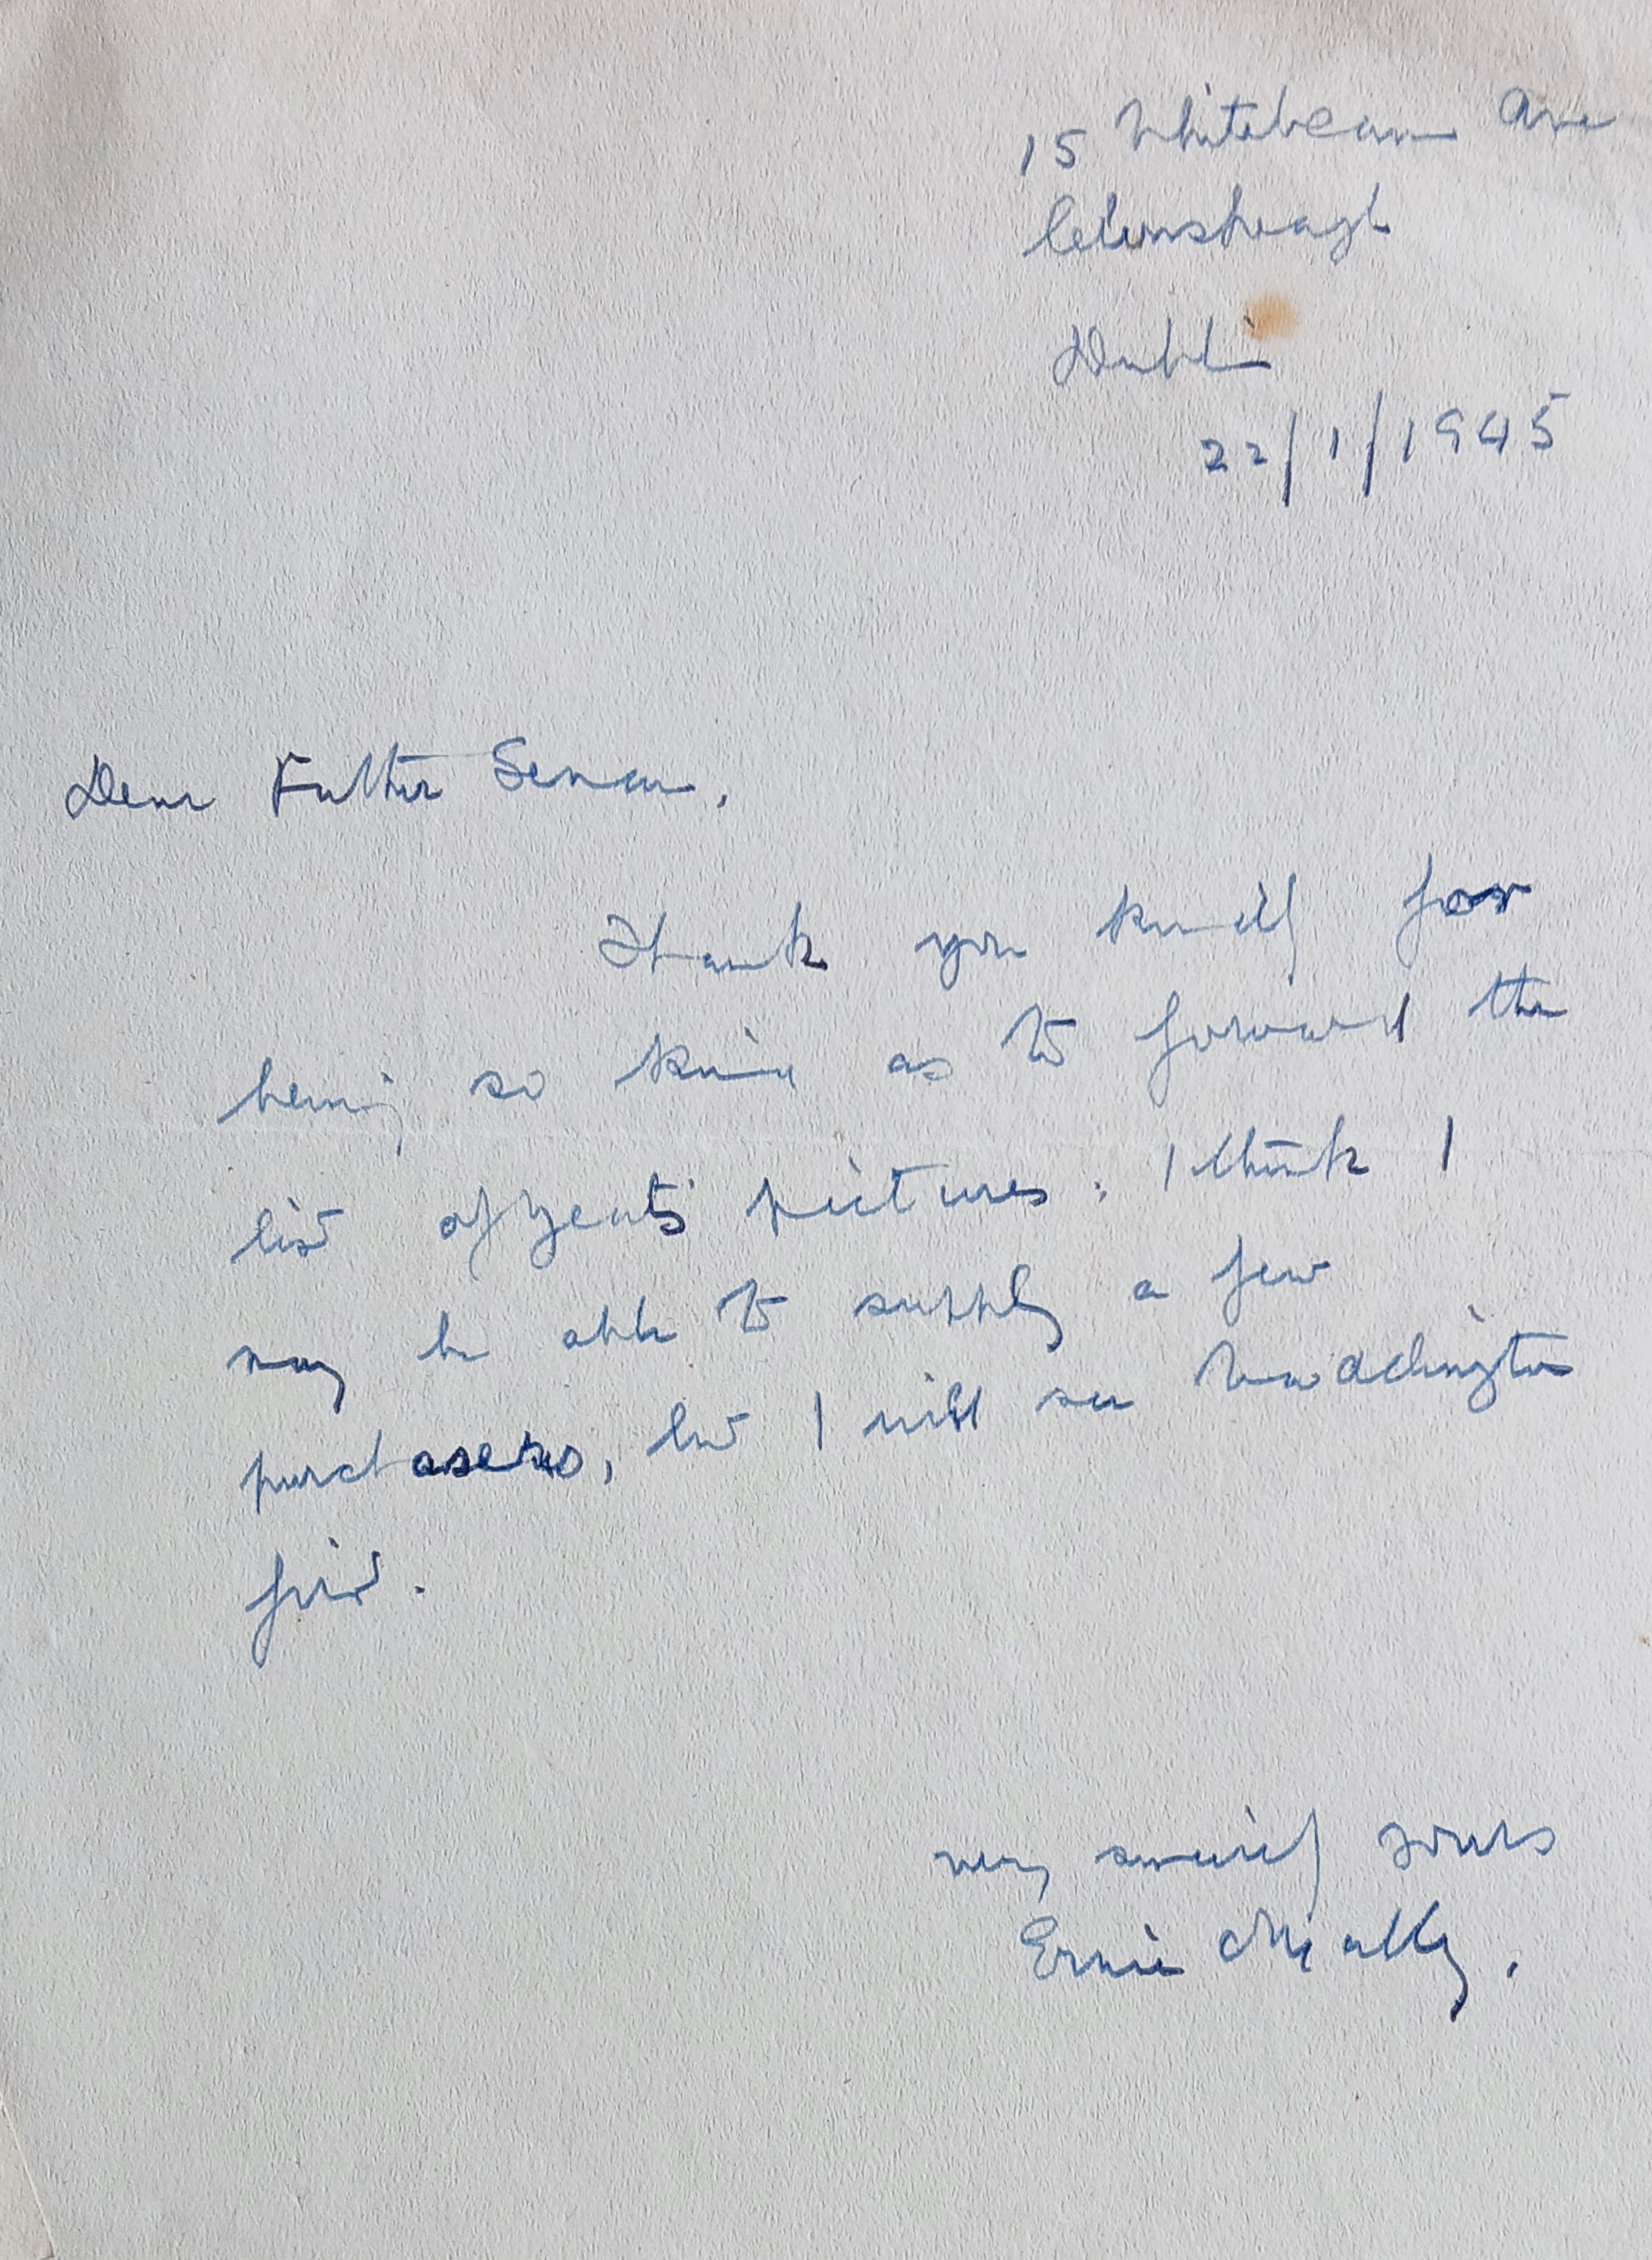 15 Whitebeam Ave
Clonskeagh
Dublin
22/1/1945
Dear Father Senan,
Thank you kindly for
being so kind as to forward the
list of Yeats' pictures. I think I
may be able to supply a few
purchasers, but I will see Waddington
first.
very sincerely yours
Ernie O'Malley.